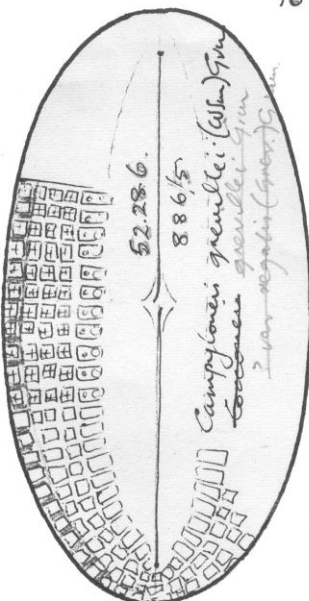 16
52.28.6.
8.86/5
Campyloneis grevillei (WSm) Grun
Cocconeis grevillei Grun
? var regalis (Grev.) Grun